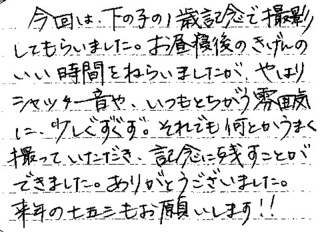 今回は、下の子の1歳記念で撮影
してもらいました。お昼寝後のきげんの
いい時間をねらいましたが、やはり
シャッター音や、いつもとちがう雰囲気
に、少しぐずぐず。それでも何とかうまく
撮っていただき、記念に残すことが
できました。ありがとうございました。
来年の七五三もお願いします!!